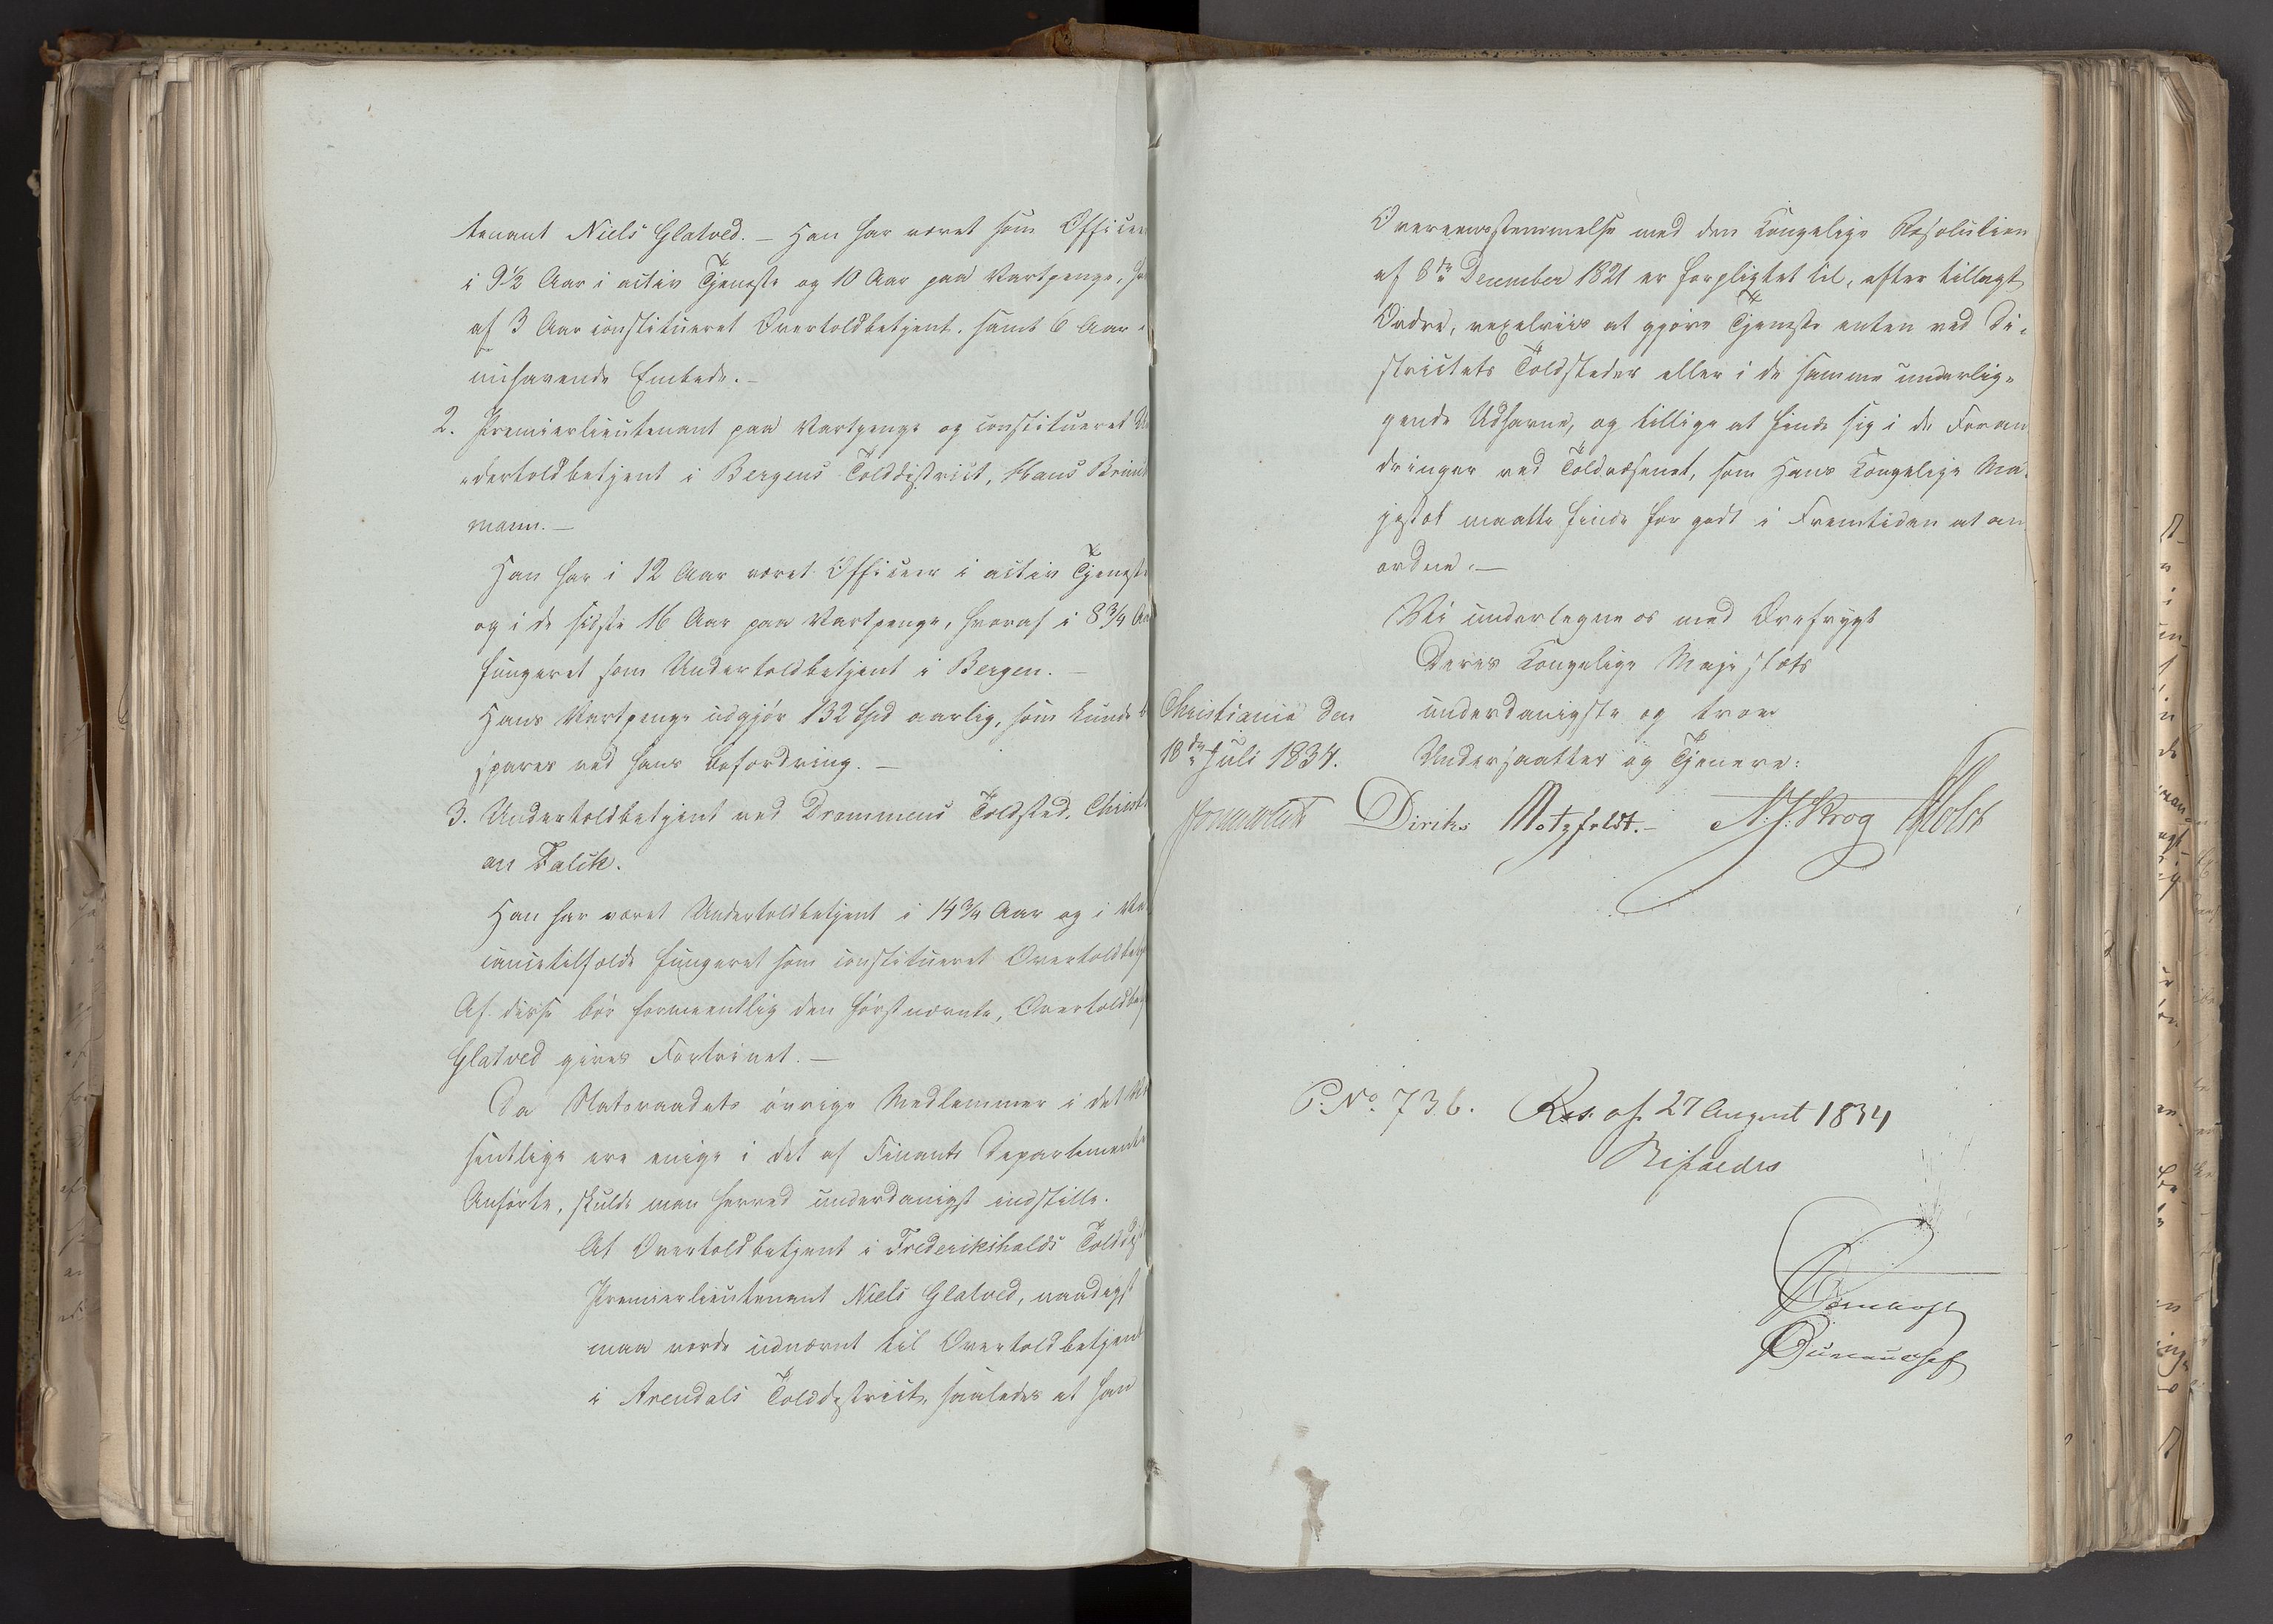 tenant Niels Glatved. – Han har været som Officeer
i 9½ Aar i activ Tjeneste og 10 Aar paa Vartpenge,
af 3 Aar constitueret Overtoldbetjent, samt 6 Aar i
nuhavende Embede. –
2. Premierlieutenant paa Vartpenge og constitueret Un
dertoldbetjent i Bergens Tolddistrict, Hans Brinch
mann. –
Han har i 12 Aar været Officeer i activ Tjeneste
og i de sidste 16 Aar paa Vartpenge, hvoraf i 8¾ Aar
fungeret som Undertoldbetjent i Bergen. –
Hans Vartpenge udgjør 132 Spd aarlig, som kunde be
spares ved hans Befordring. –
3. Undertoldbetjent ved Drammens Toldsted, Christi
an Falch.
Han har været Undertoldbetjent i 14¾ Aar og i Va
cancetilfælde fungeret som constitueret Overtoldbetj
Af disse bør formeentlig den førstnævnte, Overtoldbetj
Glatved gives Fortrinet. –
Da Statsraadets øvrige Medlemmer i det Væ
sentlige ere enige i det af Finants Departementet
Anførte, skulde man herved underdanigst indstille.
At Overtoldbetjent i Frederikshalds Tolddist
Premierlieutenant Niels Glatved, naadigst
maa vorde udnævnt til Overtoldbetjent
i Arendals Tolddistrict, saaledes at han
Overeensstemmelse med den Kongelige Resolution
af 8de December 1821 er forpligtet til, efter tillagt
Ordre, vexelviis at gjøre Tjeneste enten ved Di-
strictets Toldsteder eller i de samme underlig-
gende Udhavne, og tillige at finde sig i de Foran
dringer ved Toldvæsenet, som Hans Kongelige Ma-
jestæt maatte finde for godt i Fremtiden at an
ordne. –
Vi undertegne os med Ærefrygt
Deres Kongelige Majestæts
Christiania den underdanigste og troe
18de Juli 1834. Undersaatter og Tjenere:
Diriks Motzfeldt. – N. J. Krog Holst
P. No. 736. Res. af 27 August 1834
Bifaldes